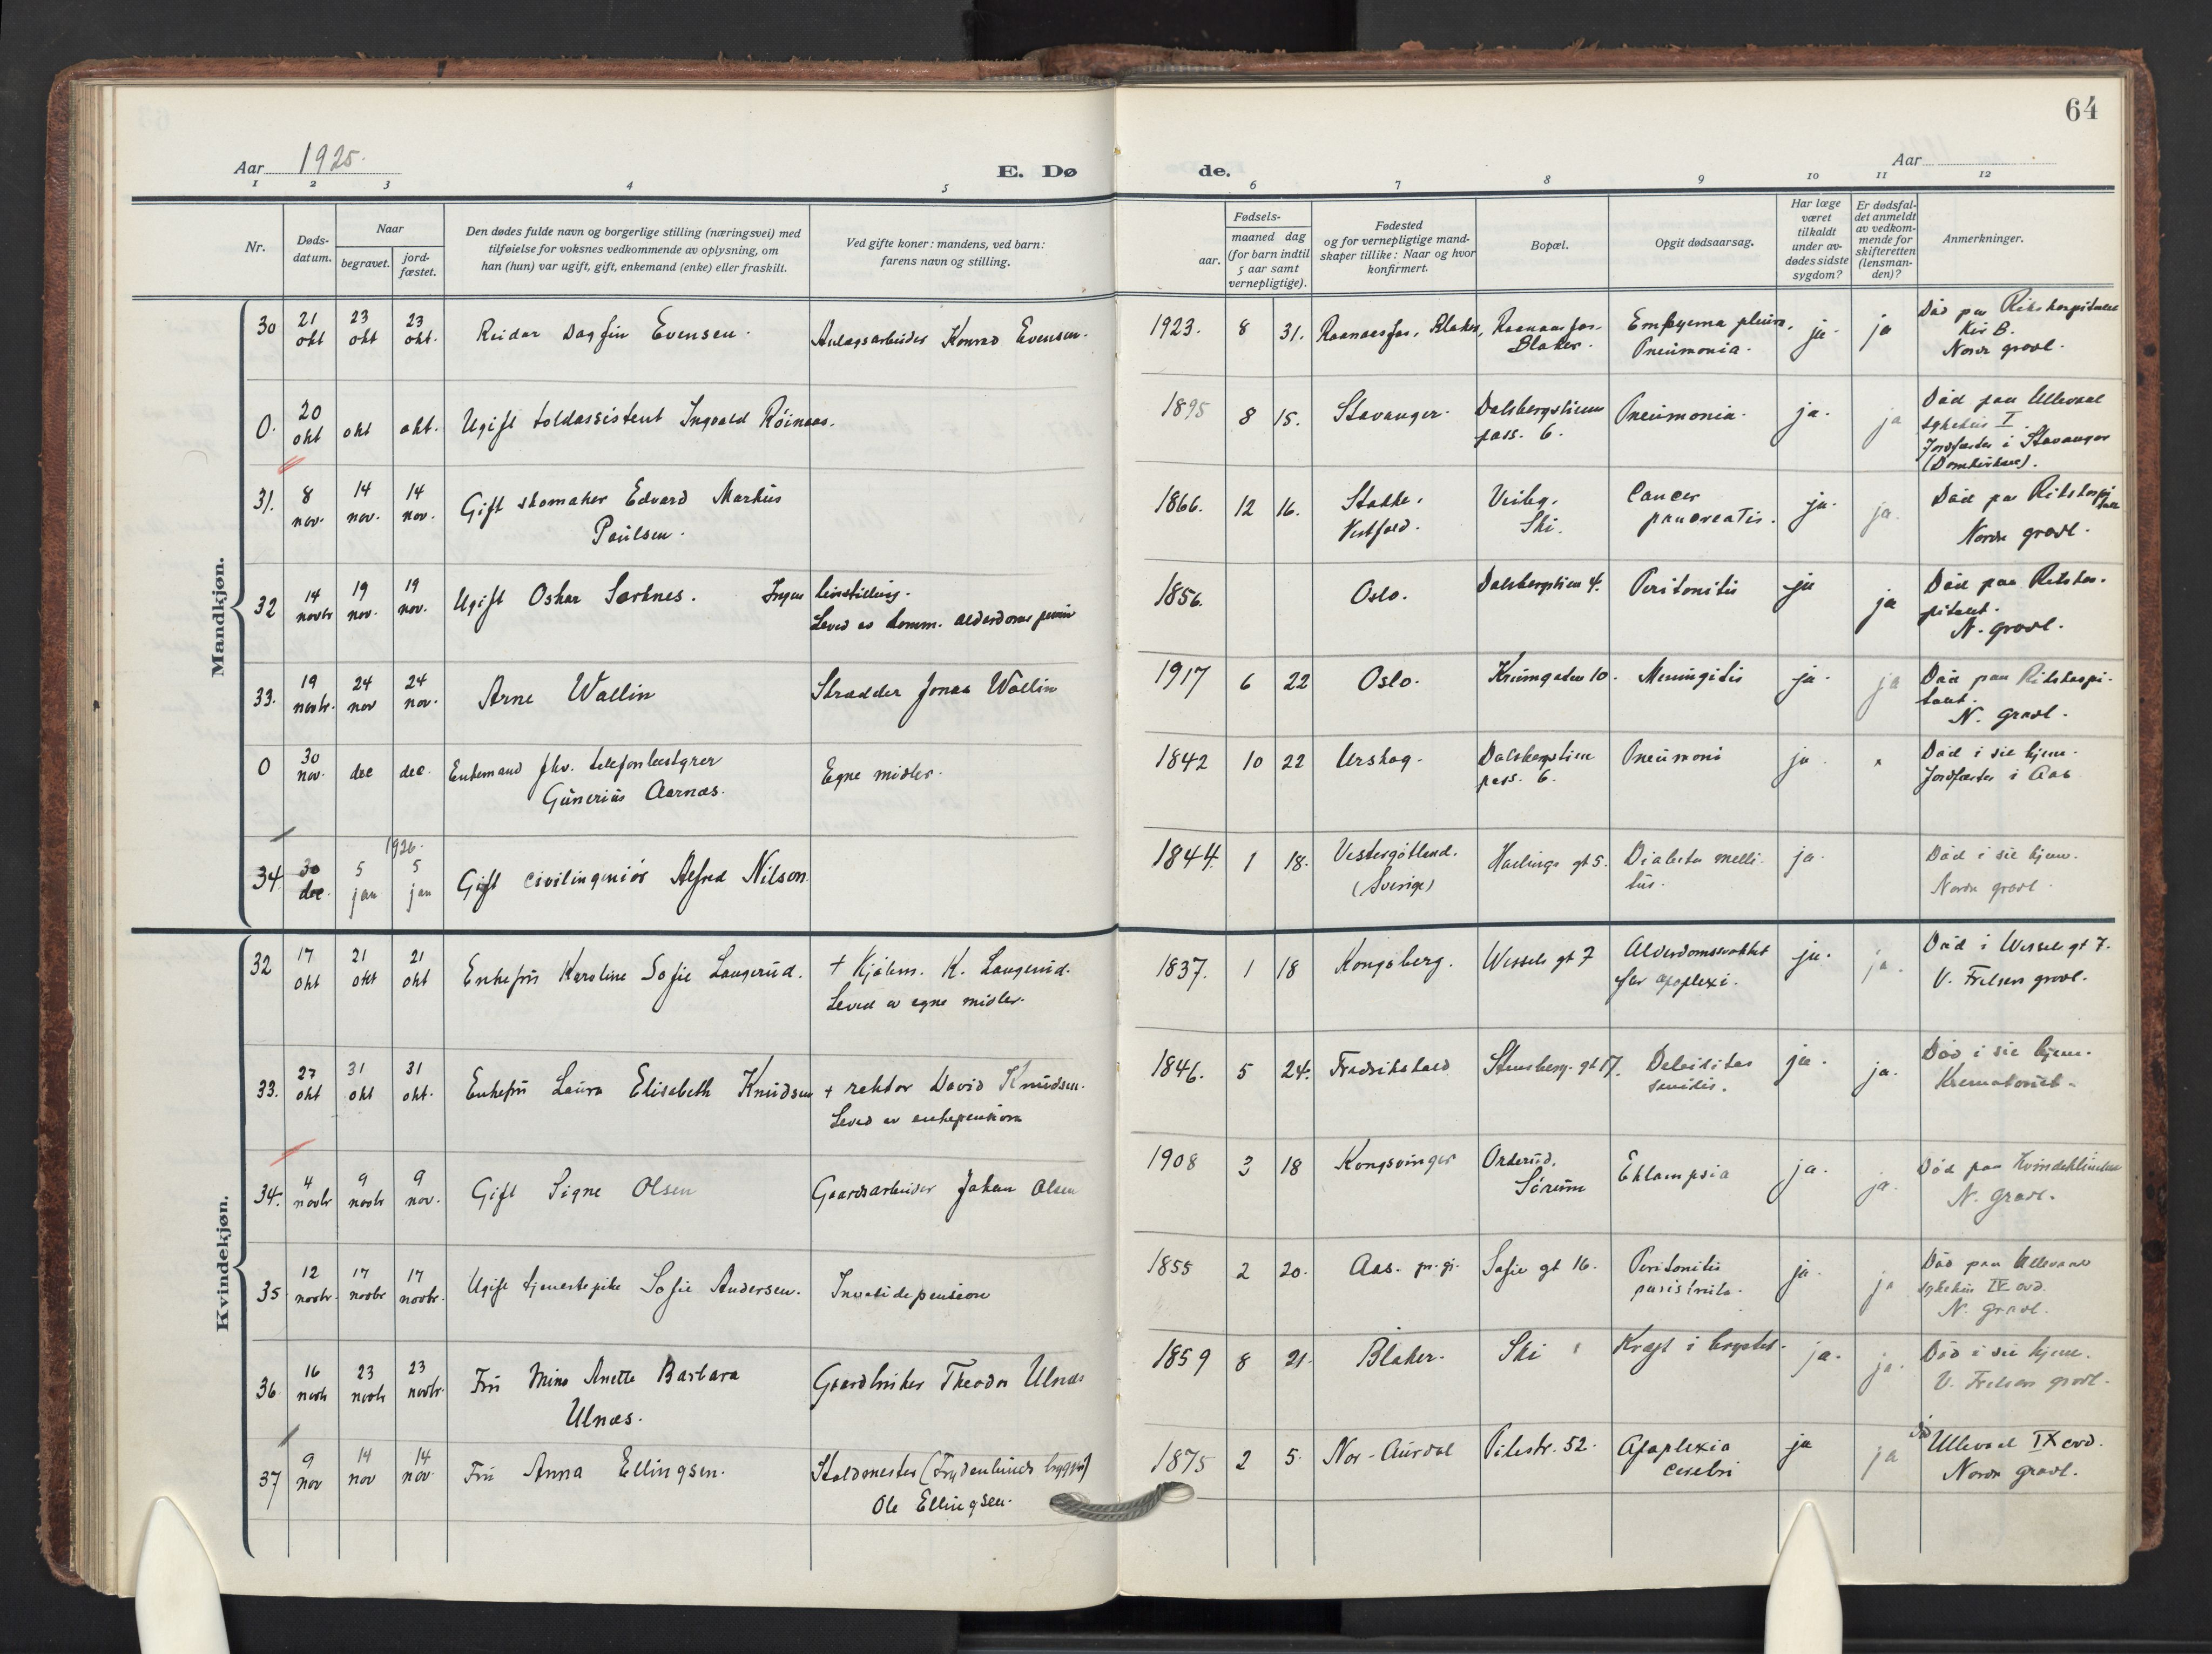 64
Aar 1925.
E. Dø
de.
Aar
1 2 3 4 5 6 7 8 9 10 11 12
Nr.
Døds-
datum.
Naar
begravet.
jord-
fæstet.
Den dødes fulde navn og borgerlige stilling (næringsvei) med
tilføielse for voksnes vedkommende av oplysning, om
han (hun) var ugift, gift, enkemand (enke) eller fraskilt.
Ved gifte koner: mandens, ved barn:
farens navn og stilling.
Fødsels-
aar.
maaned dag
(for barn indtil
5 aar samt
vernepligtige).
Fødested
og for vernepligtige mand-
skaper tillike: Naar og hvor
konfirmert.
Bopæl.
Opgit dødsaarsag.
Har læge
været
tilkaldt
under av-
dødes sidste
sygdom?
Er dødsfal-
det anmeldt
av vedkom-
mende for
skifteretten
(lensman-
den)?
Anmerkninger.
Mandkjøn.
30 21 okt 23 okt 23 okt. Reidar Dagfin Evensen. Anlægsarbeider Konrad Evensen. 1923. 8 31. Raanaasfos, Blaker, Raanaasfos. Blaker. Empyema pleura, Pneumonia. ja. ja Død paa Rikshospitalet
Kir B.
Nordre gravl.
0. 20 okt okt okt. Ugift toldassistent Ingvald Röinaas. 1895 8 15. Stavanger. Dalsbergstien pass. 6. Pneumonia. ja. ja Död paa Ullevaal
sykehus I.
Jordfæstes i Stavanger
(Domkirken).
31. 8 nov. 14 nov. 14 nov. Gift skomaker Edvard Markus
Paulsen. 1866. 12 16. Stokke, Vestfold. Ski. Cancer pancreatis. ja. ja. Död pa Rikshospitalet
Nordre gravl.
32 14 novbr 19 nov. 19 nov. Ugift Oskar Sørknes. Ingen livsstilling.
Leved av komm. alderdoms pension 1856. Oslo. Dalsbergstien 4. Peritonitis ja ja Död paa Rikshos-
pitalet.
N. gravl.
33. 19 novbr. 24 nov 24 nov. Arne Wallin Skrædder Jonas Wallin 1917 6 22 Oslo. 10. Meningitis ja. ja Död paa Rikshospi-
talet.
N. gravl.
0 30 nov. dec dec. Enkemand fhv. telefonbestyrer
Gunerius Aarnæs. Egne midler. 1842 10 22 Urskog. Dalsbergstien pass. 6. Pneumoni ja. x Död i sit hjem.
Jordfæstes i Aas
34. 30 dec. 1926. 5 jan 5 jan Gift civilingeniör Alfred Nilson 1844. 1 18. Vestergötland. (Sverige) gt 5. Diabetes melli-
tus. ja. Död i sit hjem.
Nordre gravl.
Kvindekjøn.
32 17 okt 21 okt 21 okt Enkefru Karoline Sofie Langerud. + Kjøbm. K. Langerud.
Leved av egne midler. 1837. 1 18 Kongsberg. Wessels gt 7 Alderdomssvakhet
før apoplexi. ja. ja. Död i Wessels gt 7.
V. Frelsers gravl.
33. 27 okt 31 okt 31 okt. Enkefru Laura Elisabeth Knudsen + rektor David Knudsen.
Leved av enkepension 1846. 5 24. Fredrikshald Stensberg. gt 17. Debilitas
senilis. ja. ja. Död i sit hjem.
Krematoriet.
34. 4 novbr 9 novbr 9 nov. Gift Signe Olsen Gaardsarbeider Johan Olsen 1908 3 18 Kongsvinger Orderud, Sörum Eklampsia ja. ja. Död paa Kvindeklinikken
N. gravl.
35 12 novbr. 17 novbr 17 novbr. Ugift tjenestepike Sofie Andersen. Invalidepension 1855 2 20. Aas. pr. gj. Sofie gt 16. Peritonitis ja. ja Död paa Ullevaal
sykehus IX avd.
N. gravl.
36. 16 novbr 23 novbr 23 novbr. Fru Mina Anette Barbara
Ulnæs. Gaardbruker Theodor Ulnæs 1859 8 21. Blaker. Ski Kræft i brystet. ja. ja. Död i sit hjem.
V. Frelsers gravl.
37 9 nov 14 nov 14 nov. Fru Anna Ellingsen. Staldmester (Frydenlunds bryggeri)
Ole Ellingsen. 1875 2 5. Nor-Aurdal Pilestr. 52. Apoplexia
cerebri ja ja Ullevaal IX avd.
Nordre gravl.